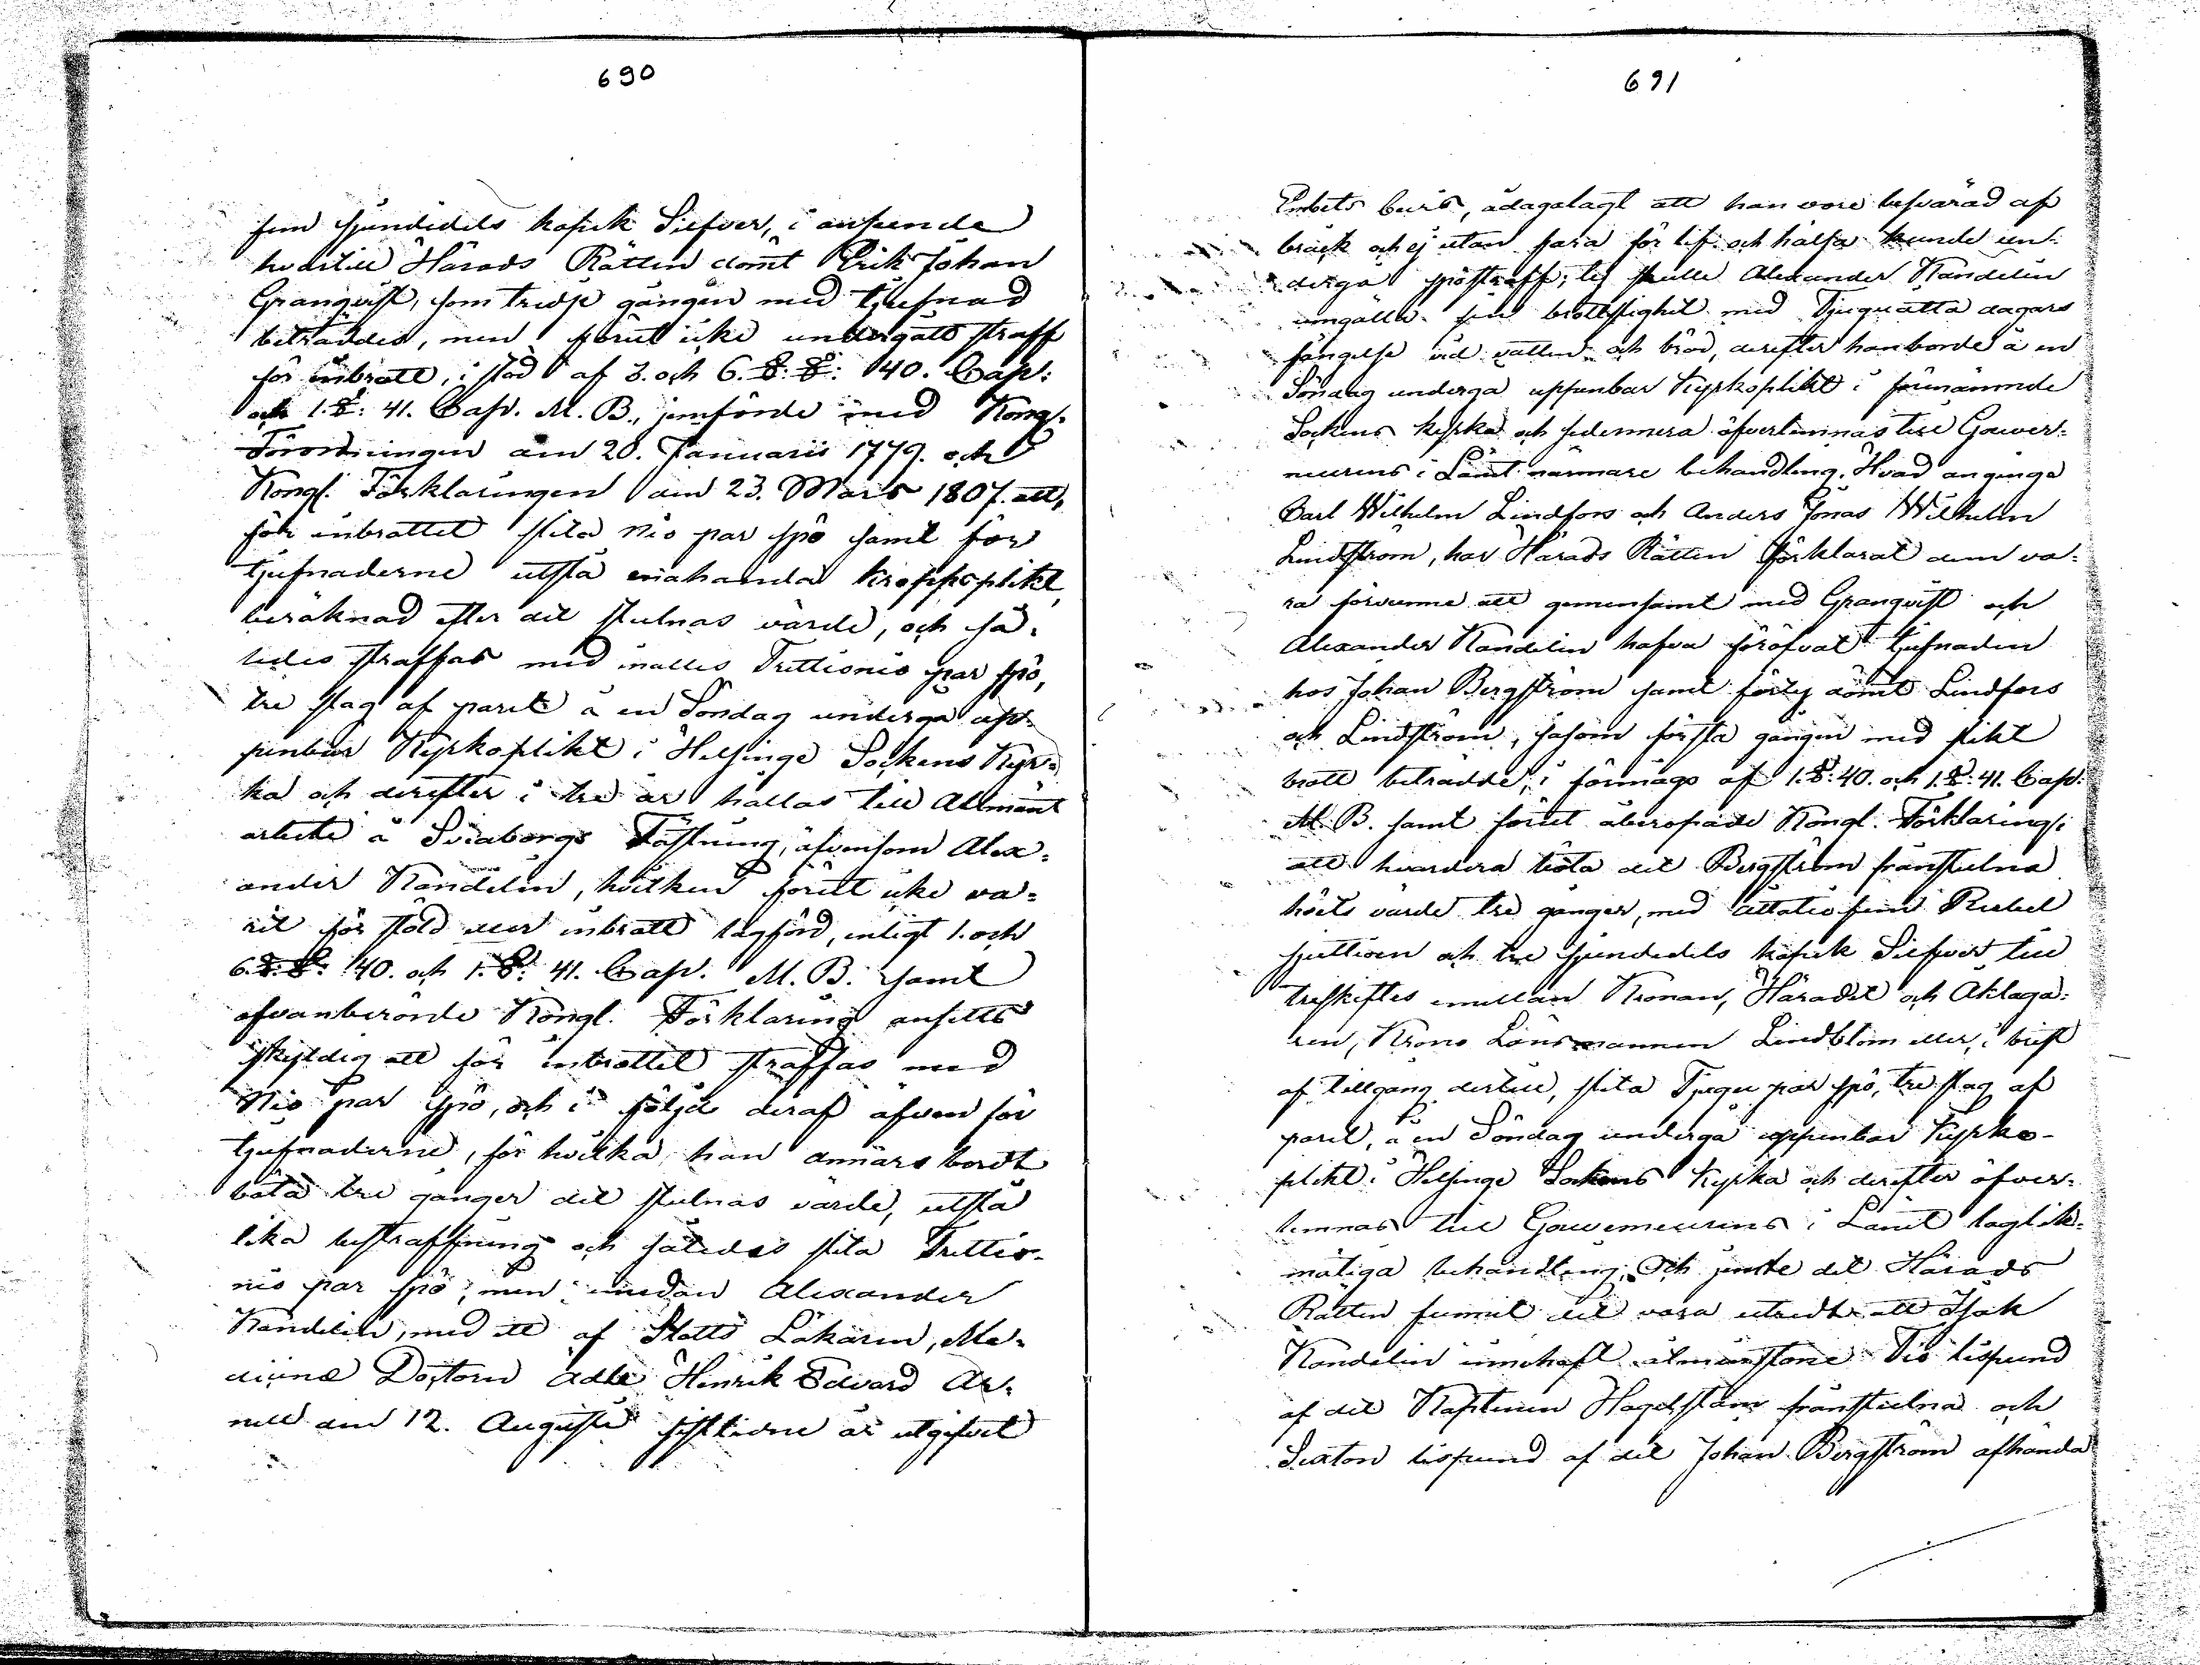 690
fem sjundedels kopek Silfver, i anseende
hvartill Härads Rätten dömt Erik Johan
Granqvist, som tredje gången med tjufnad
beträddes, men förut icke undergått straff
för inbrott, i stöd af 3. och 6. §. §: 40. Cap:
och 1. §: 41. Cap. M. B., jemförde med Kongl.
Förordningen den 20. Januarii 1779. och
Kongl. Förklaringen den 23. Mars 1807. att,
för inbrottet slita Nio par spö samt för
tjufnaderne utstå enahanda kroppsplikt,
beräknad efter det stulnas värde, och så-
ledes straffas med inalles Trettionio par spö,
tre slag af paret å en Söndag undergå up-
penbar Kyrkoplikt i Helsinge Sockens Kyr-
ka och derefter i tre år hållas till Allmänt
arbete å Sveaborgs Fästning, äfvensom Alex-
ander Kandelin, hvilken förut icke va-
rit för stöld eller inbrott lagförd, enligt 1. och
6. §. §: 40. och 1. §: 41. Cap. M. B. samt
ofvanberörde Kongl. Förklaring ansetts
skyldig att för inbrottet straffas med
Nio par spö, och i följd deraf äfven för
tjufnaderne, för hvilka han annars bordt
böta tre gånger det stulnas värde, utstå
lika bestraffning och således slita Trettio-
nio par spö; men medan Alexander
Kandelin, med ett af Slotts Läkaren, Me-
dicinæ Doctorn Adle Henrik Edvard Ar-
nell den 12. Augusti sistledne år utgifvet
691
Embets bevis, ådagalagt att han vore besvärad af
bråck och ej utan fara för lif och hälsa kunde un-
dergå spöstraff; ty skulle Alexander Kandelin
umgälla sin brottslighet med Tjuguåtta dagars
fängelse vid vatten och bröd, derefter han borde å en
Söndag undergå uppenbar Kyrkoplikt i förenämnde
Sockens kyrka och sedermera öfverlemnas till Gouver-
neurens i Länet närmare behandling. Hvad anginge
Carl Wilhelm Lindfors och Anders Jonas Wilhelm
Lindström, har Härads Rätten förklarat dem va-
ra förvunne att gemensamt med Granqvist och
Alexander Kandelin hafva föröfvat tjufnaden
hos Johan Bergström samt förty dömt Lindfors
och Lindström, såsom första gången med slikt
brott beträdde, i förmågo af 1. §: 40. och 1. §: 41. Cap:
M. B. samt förut åberopade Kongl. Förklaring,
att hvardera böta det Bergström frånstulna
höets värde tre gånger, med åttatiofem Rubel
sjuttioen och tre sjundedels kopek Silfver till
treskiftes emellan Kronan, Häradet och Åklaga-
ren, Krono Länsmannen Lindblom eller, i brist
af tillgång dertill, slita Tjugu par spö, tre slag af
paret, å en Söndag undergå uppenbar Kyrko-
plikt i Helsinge Sockens Kyrka och derefter öfver-
lemnas till Gouverneurens i Länet laglik-
mätiga behandling. Och juste det Härads
Rätten funnit det vara utredt att Isak
Kandelin innehaft åtminstone Tio lispund
af det Kaptenen Hagelstam frånstulna och
Sexton lispund af det Johan Bergström afhända